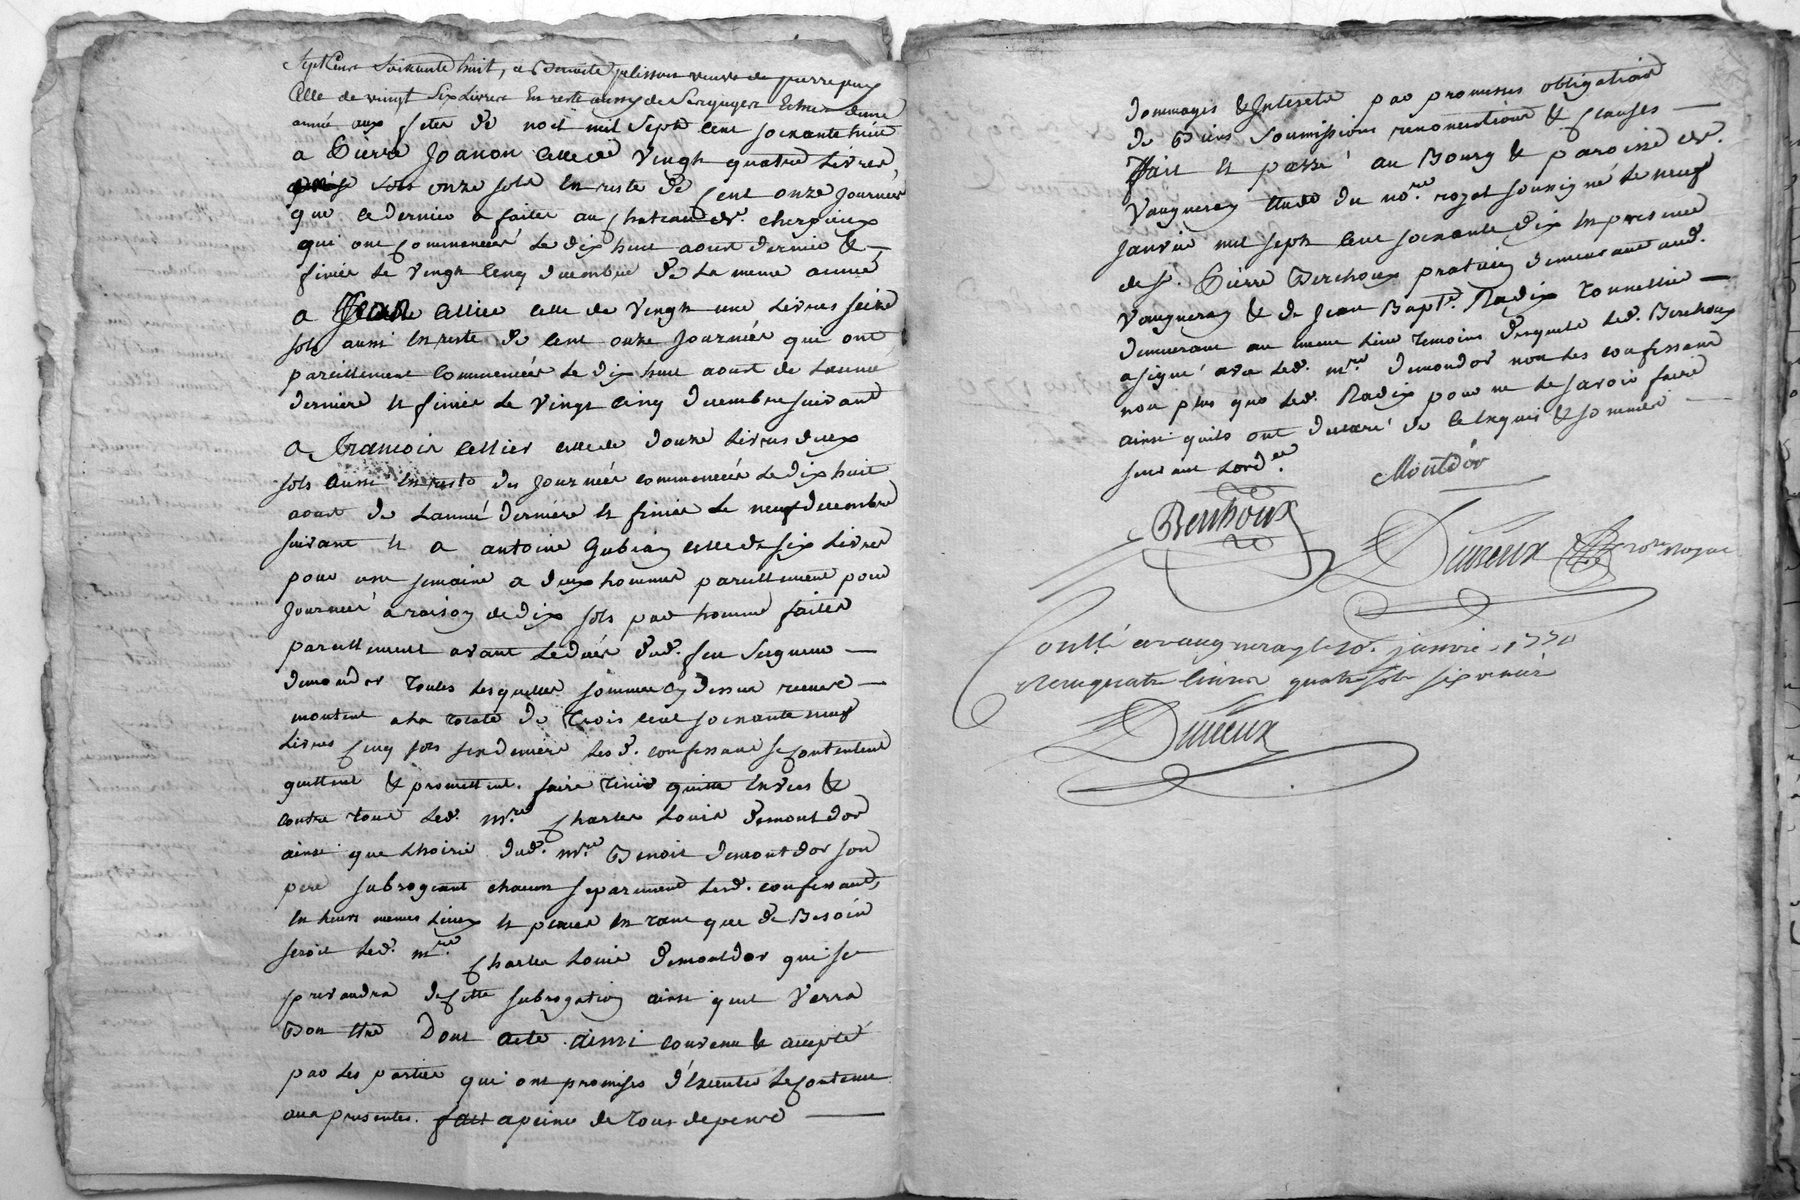 Sept Cent Soixante huit, a Benoite pelisson veuve de pierre puy
Celle de vingt Six Livres En reste aussy de Ses gages Echus dune
année aux fetes de noel mil Sept Cent soixante huit
a Pierre Joanon Celle de Vingt quatre Livres
sols onze sols En reste de Cent onze Journées
que Ce dernier a faites au Chateau de
qui ont Commencées Le dix huit aoust dernier &
finies Le Vingt Cinq decembre de La meme année
a Cellier Celle de Vingt une Livres seize
sols aussi En reste de Cent onze Journées qui ont
pareillement Commencées Le dix huit aoust de Lannée
derniere Et finies Le Vingt Cinq decembre suivant
a francois Cellier Celle de douze Livres deux
sols aussi En reste des Journées commencées Le dix huit
aoust de Lannée derniere Et finies Le neuf decembre
suivant Et a antoine Gubian Celle de six Livres
pour une semaine a deux hommes pareillement pour
Journées a raison de dix sols par homme faites
pareillement avant Le déces dud. feu Seigneur
demondor toutes Lesquelles sommes Cy dessus
montent a La totale de trois Cent soixante neuf
Livres Cinq sols six deniers Lesd. confessant se Contentent
quittent & promettent faire tenir quitte Envers &
contre tous Led. mre. Charles Louis demontdor
ainsi que Lhoirie dud. mre. Benoit demontdor son
pere subrogeant chacun separement Lesd. confessants
En Leurs memes Lieux Et places En tant que de Besoin
seroit Led. mre. Charles Louis demontdor qui se
prevaudra de Cette subrogation ainsi quil Verra
Bon Etre Dont acte ainsi convenu & accepté
par Les parties qui ont promises d'Executer Le Contenu
aux presentes. fait a peine de tous depens
dommages & Interets par promesses obligations
de Biens soumissions renonciations & Clauses
ffait Et passé au Bourg & paroisse de
Vaugneray Etude du nore. royal soussigné Le neuf
Janvier mil sept Cent soixante dix En presence
de sr. Pierre Berchoux praticien demeurant aud.
Vaugneray & de Jean Bapte. Radix tonnellier
demeurant au meme Lieu temoins desquels Led. Berchoux
a signé avec Led. mre. demondor non Les confessants
non plus que Led. Radix pour ne Le savoir faire
ainsi quils ont declaré de Ce Enquis & sommés
suivant Lordce.
Montdor
Berchoux
Dureux nore royal
Conllé a vaugneray le 20e. janvier 1770
Recu quatre livres quatre sols six deniers
Dureux